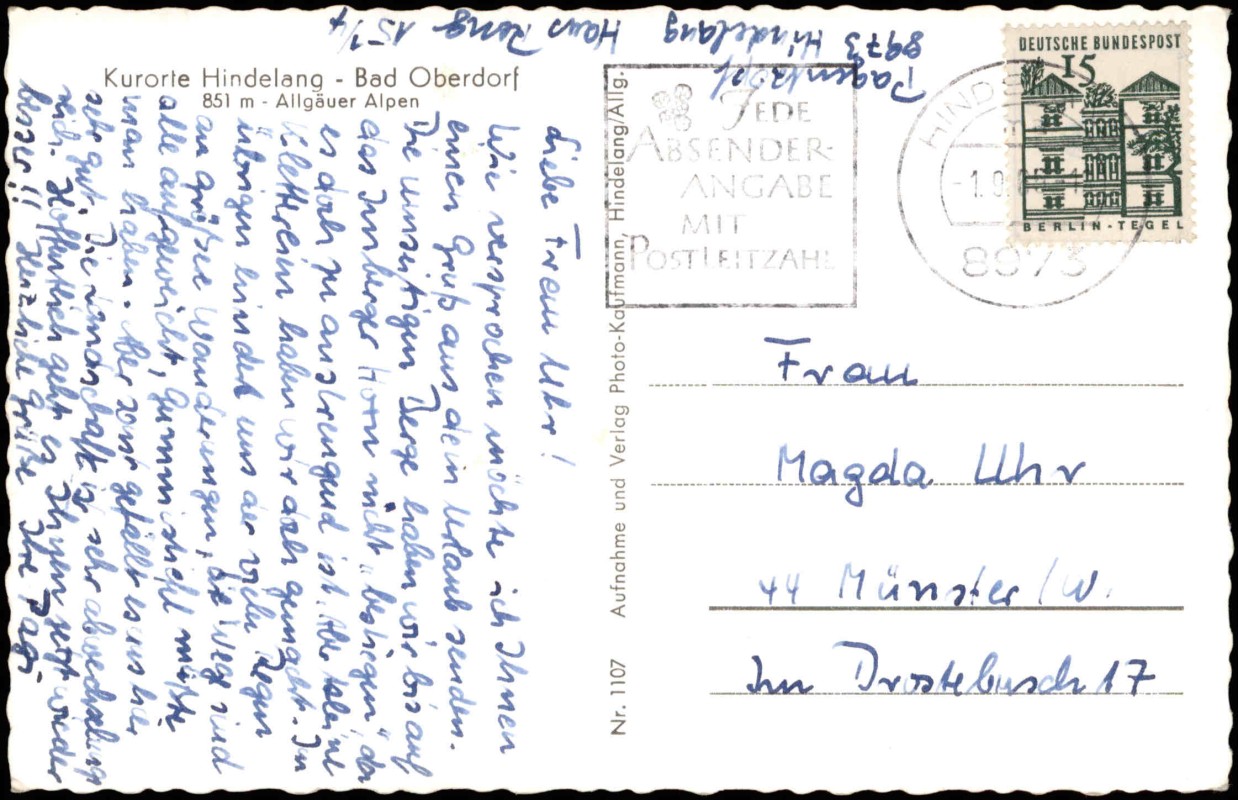 Kurorte Hindelang - Bad Oberdorf
851 m - Allgäuer Alpen
Liebe Frau Uhr!
Wie versprochen möchte ich Ihnen
einen Gruß aus dem Urlaub senden.
Die hiesigen Berge haben wir bis auf
das Imberger Horn nicht "bestiegen", da
es doch zu anstrengend ist. Aber kleine
Klettereien haben wir doch gemacht. Im
übrigen hindert uns der viele Regen
an größere Wanderungen, die Wege sind
alle aufgeweicht, Gummistiefel müßte
man haben. Aber sonst gefällt es uns hier
sehr gut. Die Landschaft ist sehr abwechslungs
reich. Hoffentlich geht es Ihnen jetzt wieder
besser!! Herzliche Grüße Ihre
8973 Hindelang Haus 15 1/4
Nr. 1107 Aufnahme und Verlag Photo-Kaufmann, Hindelang/Allg.
JEDE
ABSENDER-
ANGABE
MIT
POSTLEITZAHL
8973
DEUTSCHE BUNDESPOST
15
BERLIN-TEGEL
Frau
Magda Uhr
44 Münster/W.
Im Drostebusch 17